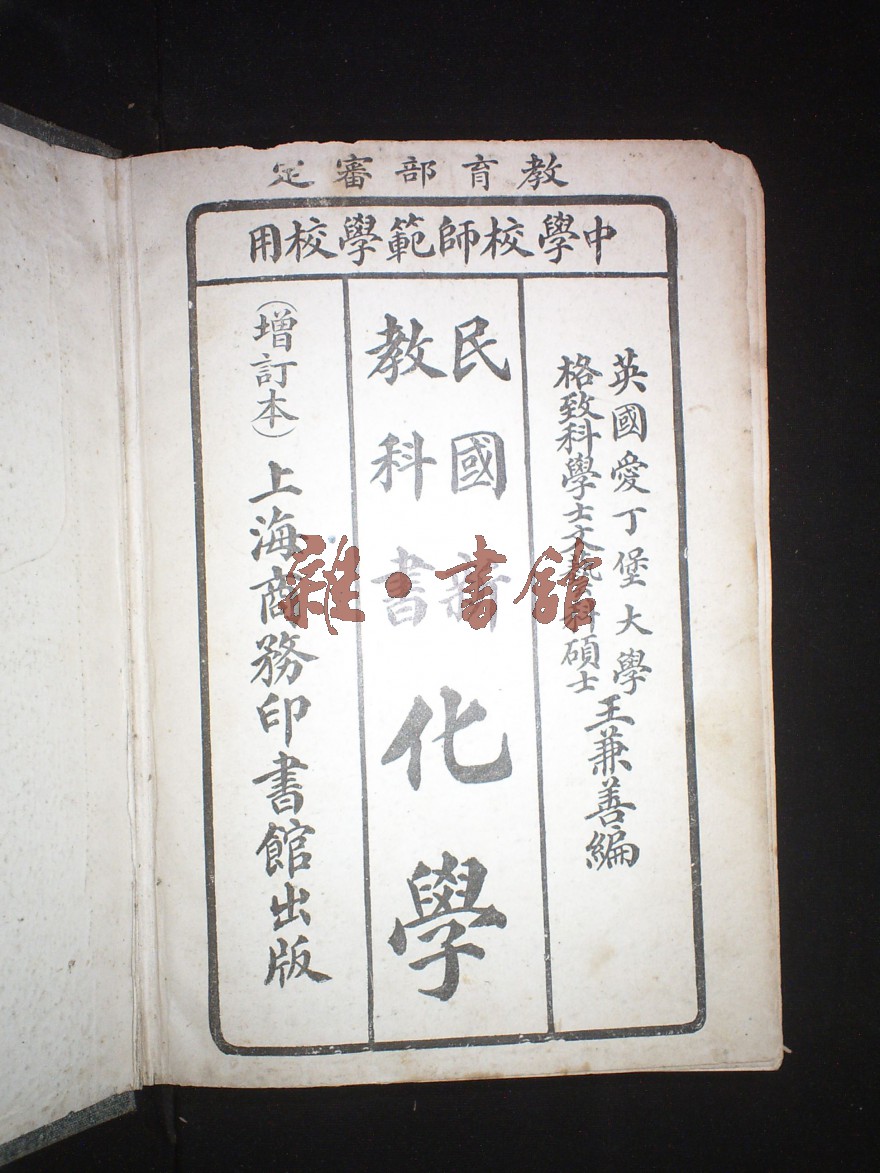 教育部審定
中學校師範學校用
英國愛丁堡大學
格致科學士文藝科碩士
王兼善編
民國新
教科書
化學
(增訂本)上海商務印書館出版
雜·書館